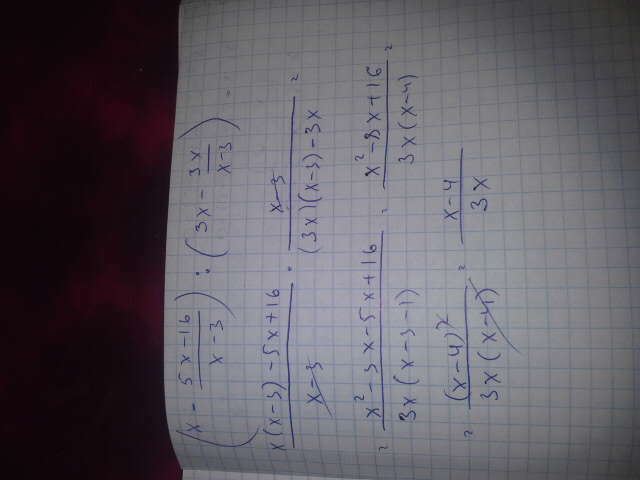 (x - \frac{5x-16}{x-3}) : (3x - \frac{3x}{x-3}) =
\frac{x(x-3)-5x+16}{x-3} \cdot \frac{x-3}{(3x)(x-3)-3x} =
= \frac{x^2-3x-5x+16}{3x(x-3-1)} = \frac{x^2-8x+16}{3x(x-4)} =
= \frac{(x-4)^2}{3x(x-4)} = \frac{x-4}{3x}